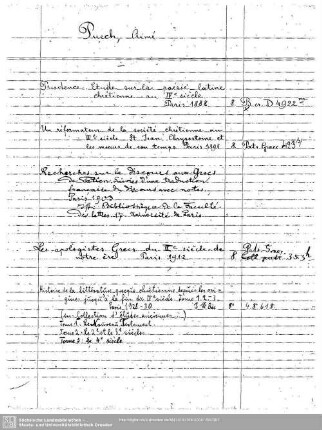 Puech, Aimé
Prudence. Etude sur la poésie latine
chrétienne au IVe siècle
Paris 1888 8 D 4922
Un réformateur de la société chrétienne au
IVe siècle. St Jean Chrysostome et
les moeurs de son temps Paris 1891 8 Patr. Graec
Recherches sur le Discours aux Grecs
de Tatien, suivies d'une traduction
française du Discours avec notes.
Paris 1903
Bibliothèque de la Faculté
des lettres 17. Université de Paris
Les apologistes Grecs du IIe siècle de
notre ère Paris 1912 8 Patr. Graec. Coll. 353h
Histoire de la littérature grecque chrétienne depuis les ori-
gines jusqu'à la fin du IVe siècle Tome 1-3.
Paris 1928-30 8°
Collection d'études anciennes
Tome 1. Le Nouveau Testament.
Tome 2. Le 2e et le 3e siècles
Tome 3. Le 4e siècle